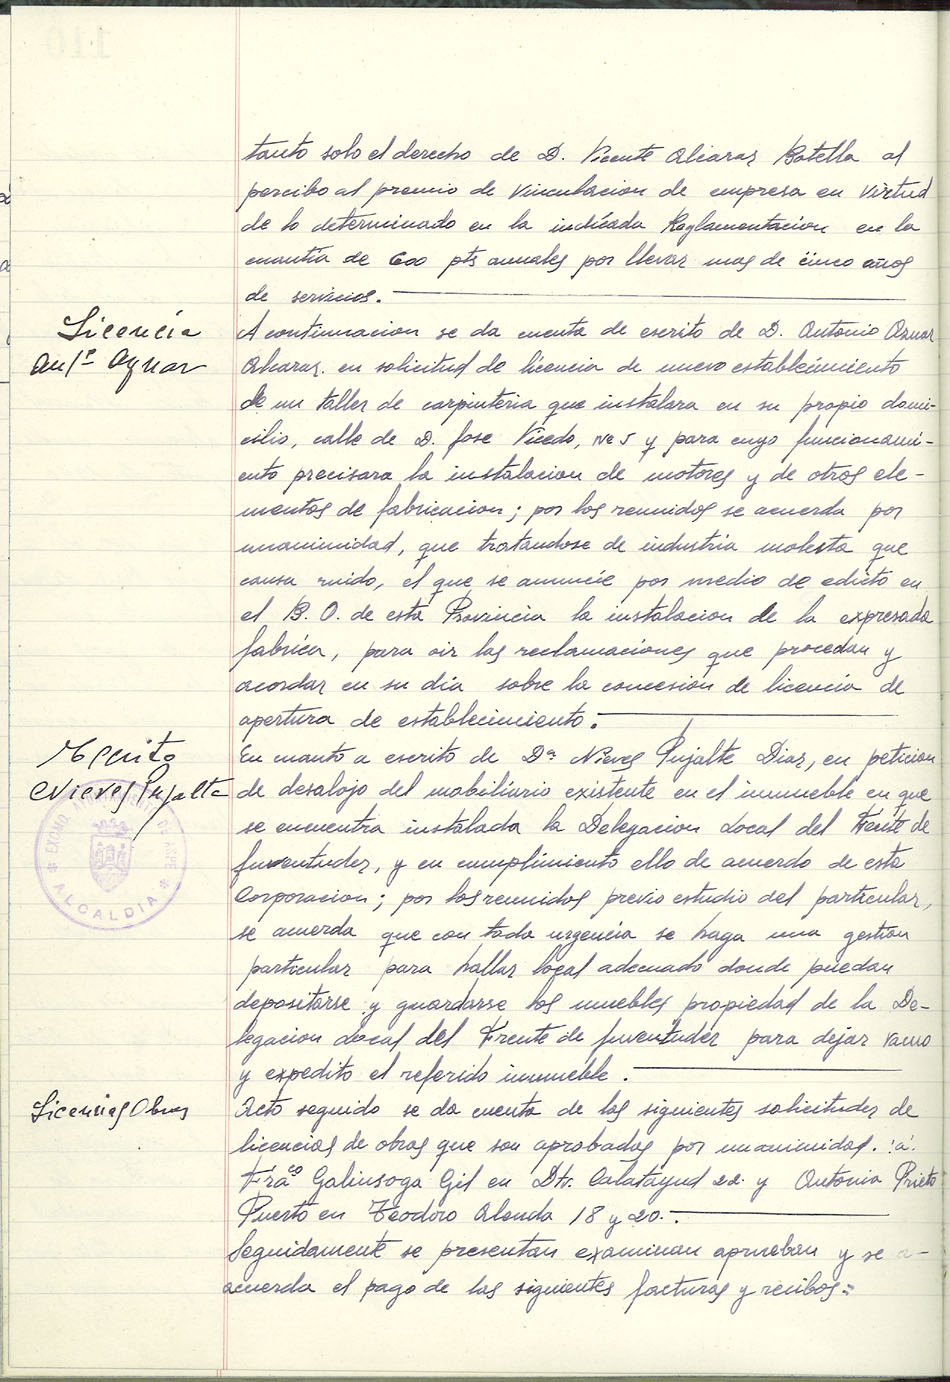 tanto solo el derecho de D. Vicente Alcaraz Botella al
percibo al premio de vinculacion de empresa en virtud
de lo determinado en la indicada Reglamentacion en la
cuantia de 600 pts anuales por llevar mas de cinco años
de servicios.
Licencia
Antº Aznar
A continuacion se da cuenta de escrito de D. Antonio Aznar
Alcaraz. en solicitud de licencia de nuevo establecimiento
de un taller de carpinteria que instalara en su propio domi-
cilio, calle de D. Jose Vicedo, nº 5 y para cuyo funcionami-
ento precisara la instalacion de motores y de otros ele-
mentos de fabricacion; por los reunidos se acuerda por
unanimidad, que tratandose de industria molesta que
causa ruido, el que se anuncie por medio de edicto en
el B. O. de esta Provincia la instalacion de la expresada
fabrica, para oir las reclamaciones que procedan y
acordar en su dia sobre la concesion de licencia de
apertura de establecimiento.
Escrito
Nieves Pujalte
En cuanto a escrito de Dª Nieves Pujalte Diaz, en peticion
de desalojo del mobiliario existente en el inmueble en que
se encuentra instalada la Delegacion Local del Frente de
Juventudes, y en cumplimiento ello de acuerdo de esta
Corporacion; por los reunidos previo estudio del particular,
se acuerda que con toda urgencia se haga una gestion
particular para hallar local adecuado donde puedan
depositarse y guardarse los muebles propiedad de la De-
legacion Local del Frente de Juventudes para dejar vacuo
y expedito el referido inmueble.
EXCMO. AYUNTAMIENTO DE ASPE
* ALCALDIA *
Licencias Obras
Acto seguido se da cuenta de las siguientes solicitudes de
licencias de obras que son aprobadas por unanimidad. : a.
Fraºº Galinsoga Gil en Dtr. Calatayud 22. y Antonia Prieto
Puerto en Teodoro Alenda 18 y 20.-
Seguidamente se presentan examinan aprueban y se a-
acuerda el pago de las siguientes facturas y recibos:=
110